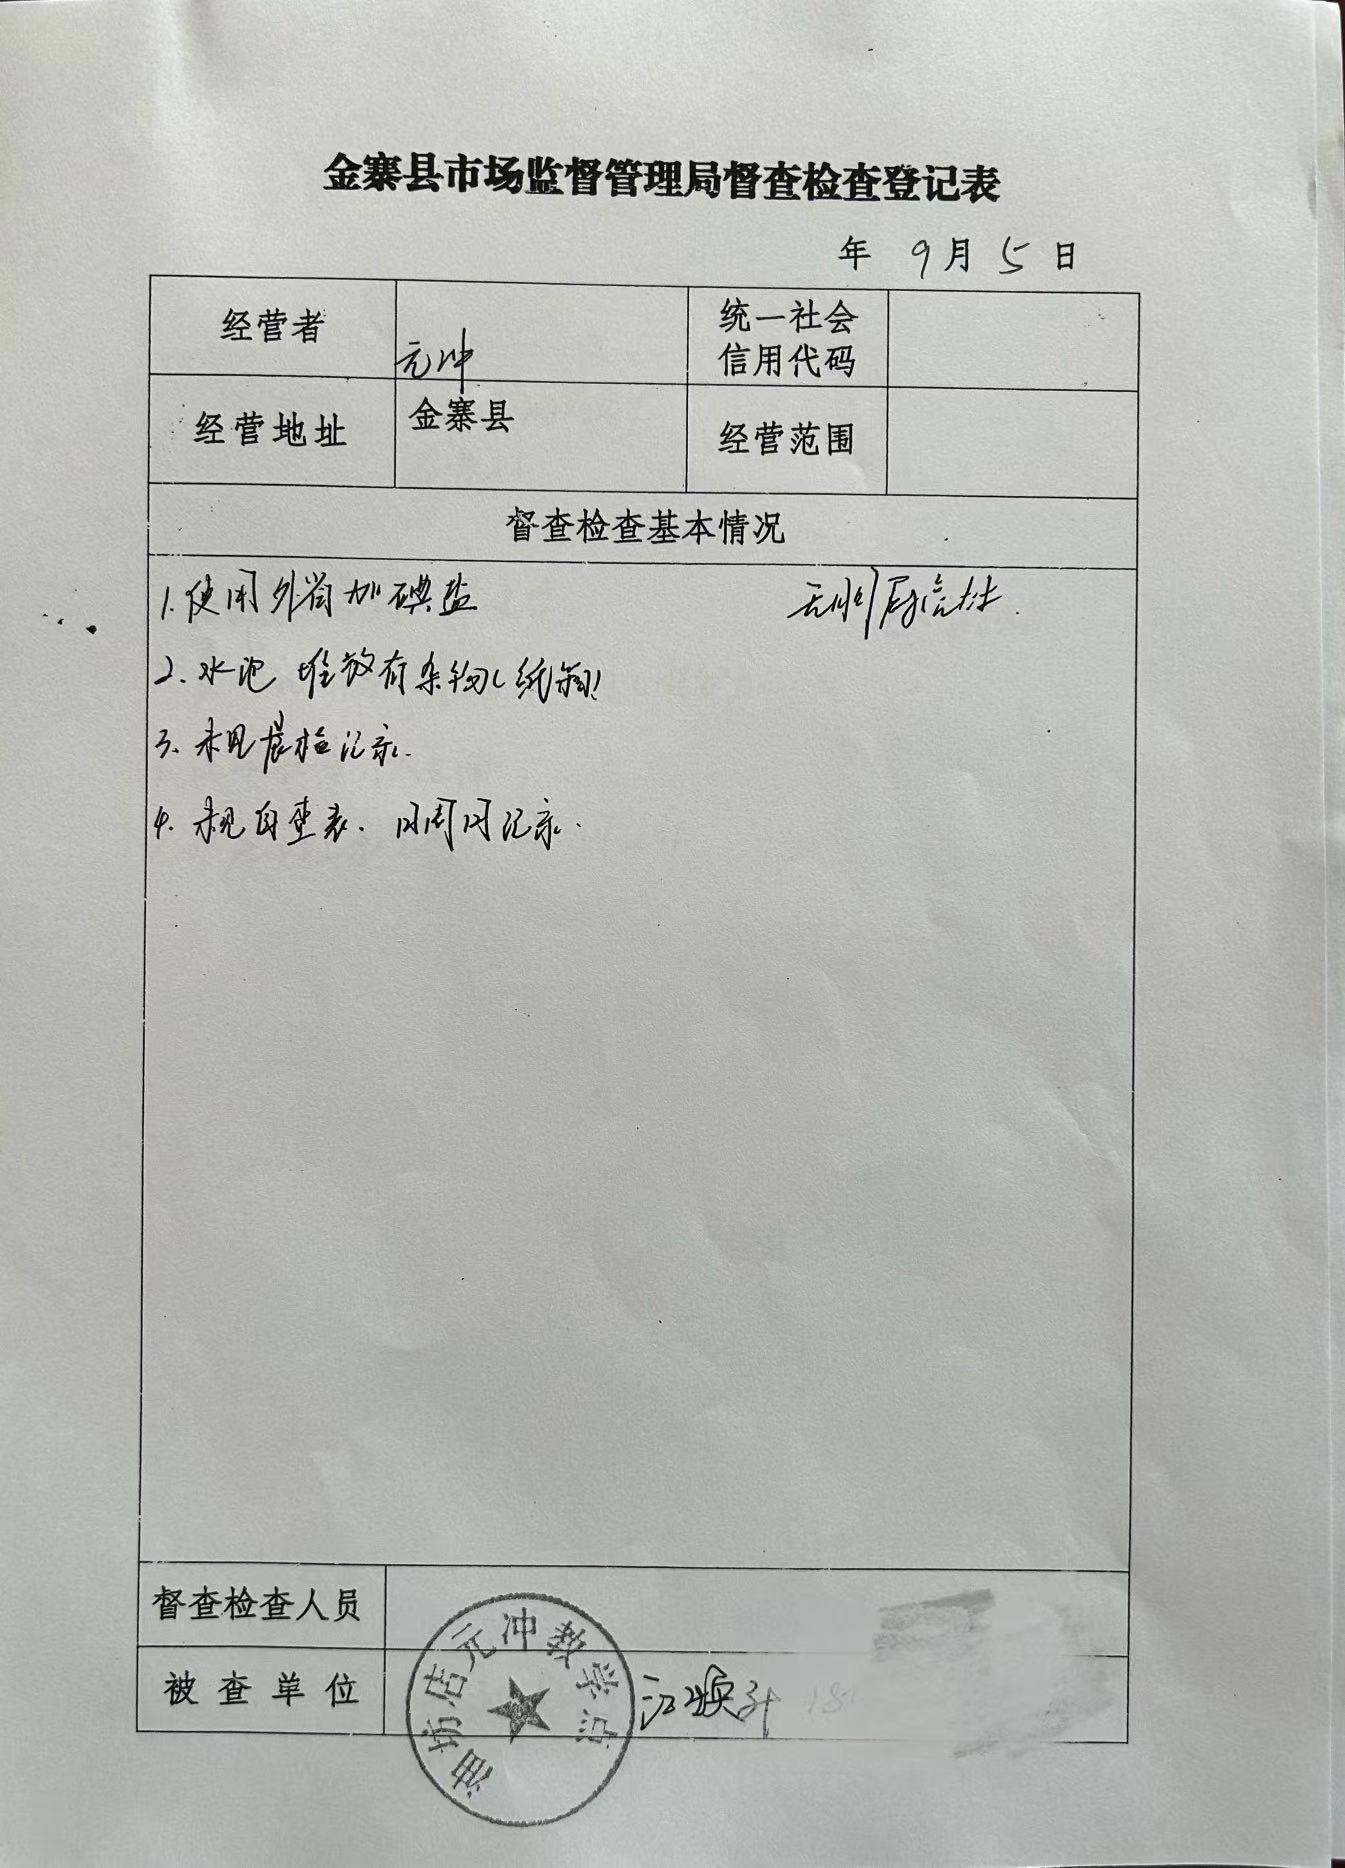 金寨县市场监督管理局督查检查登记表
年 9月 5 日
经营者 元冲 统一社会信用代码
经营地址 金寨县 经营范围
督查检查基本情况
1. 使用外省加碘盐
2. 水池 堆放有杂物(纸箱)
3. 未见晨检记录.
4. 未见自查表. 日周月记录.
督查检查人员
被查单位 江焕
油坊店元冲教学点